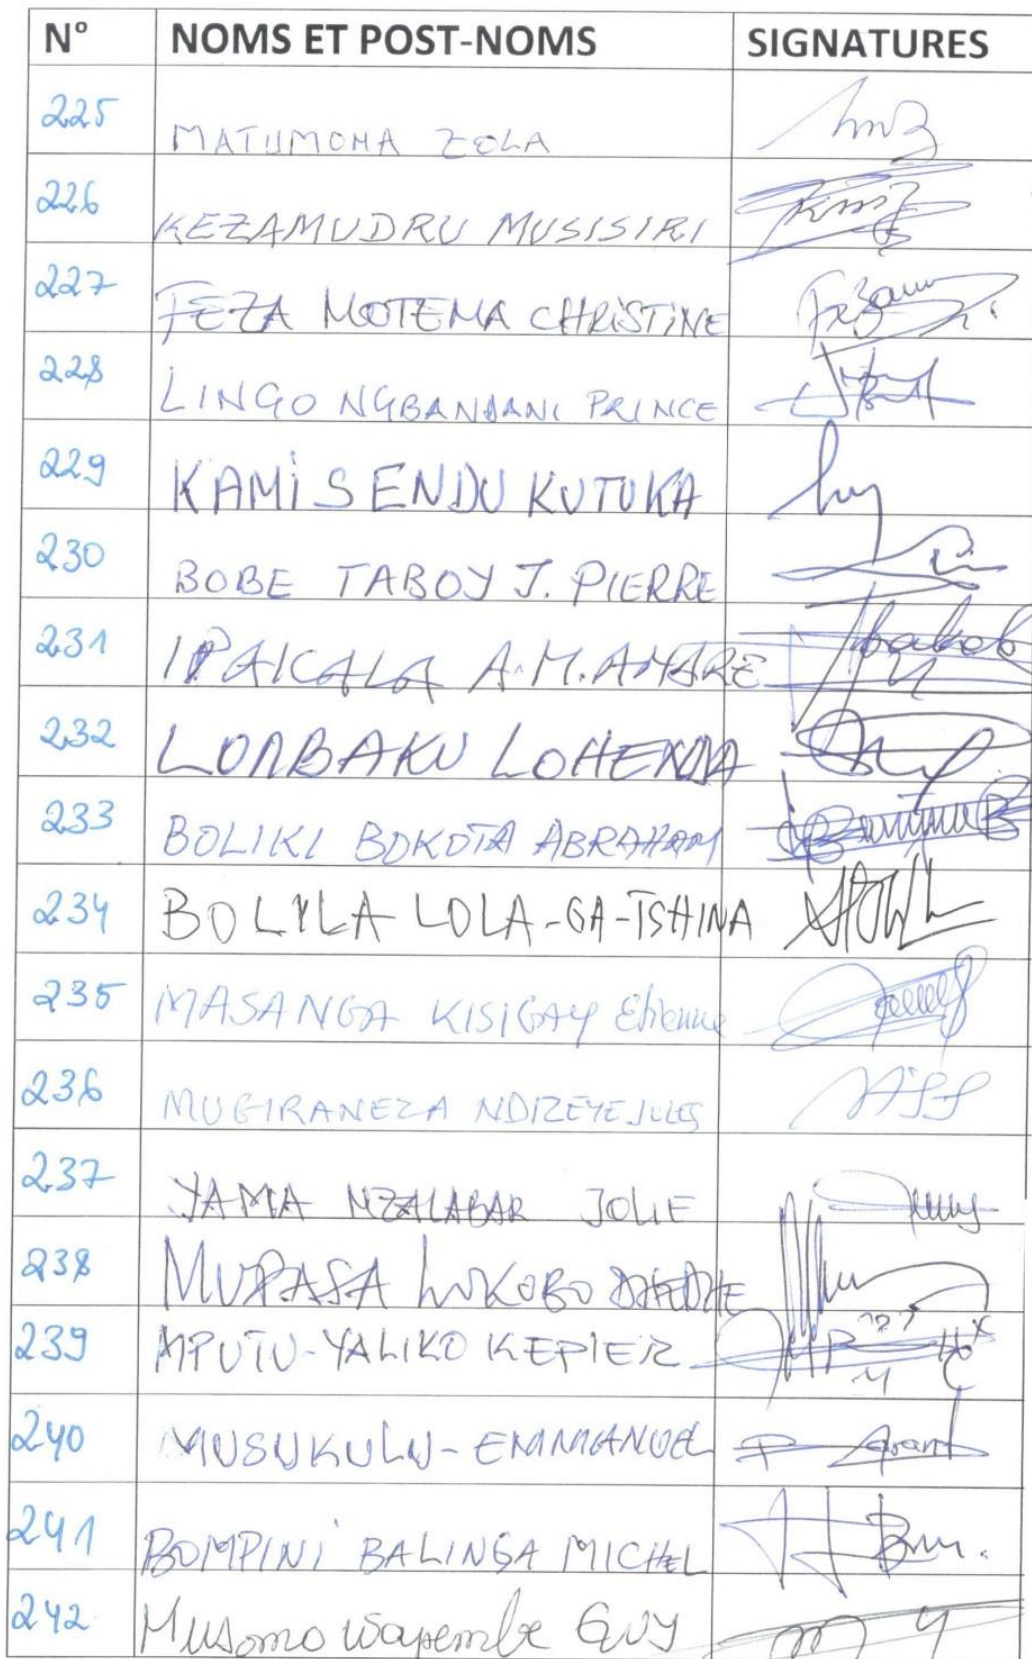 N° NOMS ET POST-NOMS SIGNATURES
225 MATUMONA ZOLA
226 KEZAMUDRU MUSISIRI
227 FEZA MOTEMA CHRISTINE
228 LINGO NGBANDANI PRINCE
229 KAMISENDU KUTUKA
230 BOBE TABOY J. PIERRE
231 IPAKALA A.M. AMARE
232 LOMBAKU LOHENDA
233 BOLIKI BOKOTA ABRAHAM
234 BOLYLA LOLA-GA-TSHINA
235 MASANGA KISIGAY Etienne
236 MUGIRANEZA NDIZEYE JULES
237 YAMA NZALABAR JOLIE
238 MUPASA LUKOBO
239 MPUTU-YALIKO KEPLER
240 MUSUKULU-EMMANUEL
241 BOMPINI BALINGA MICHEL
242 Musomo wapembe GUY